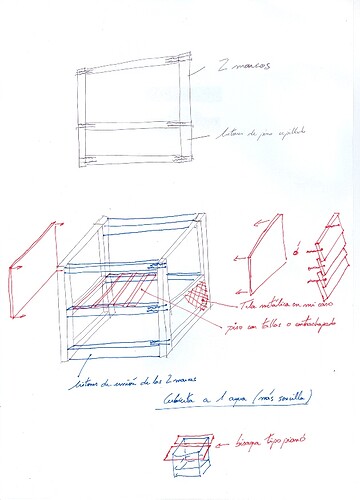 2 marcos
listones de pino cepillado
ó
Tela metálica en mi caso
piso con tallos o contrachapado
listones de unión de los 2 marcos
Cubierta a 1 agua (más sencilla)
bisagra tipo piano